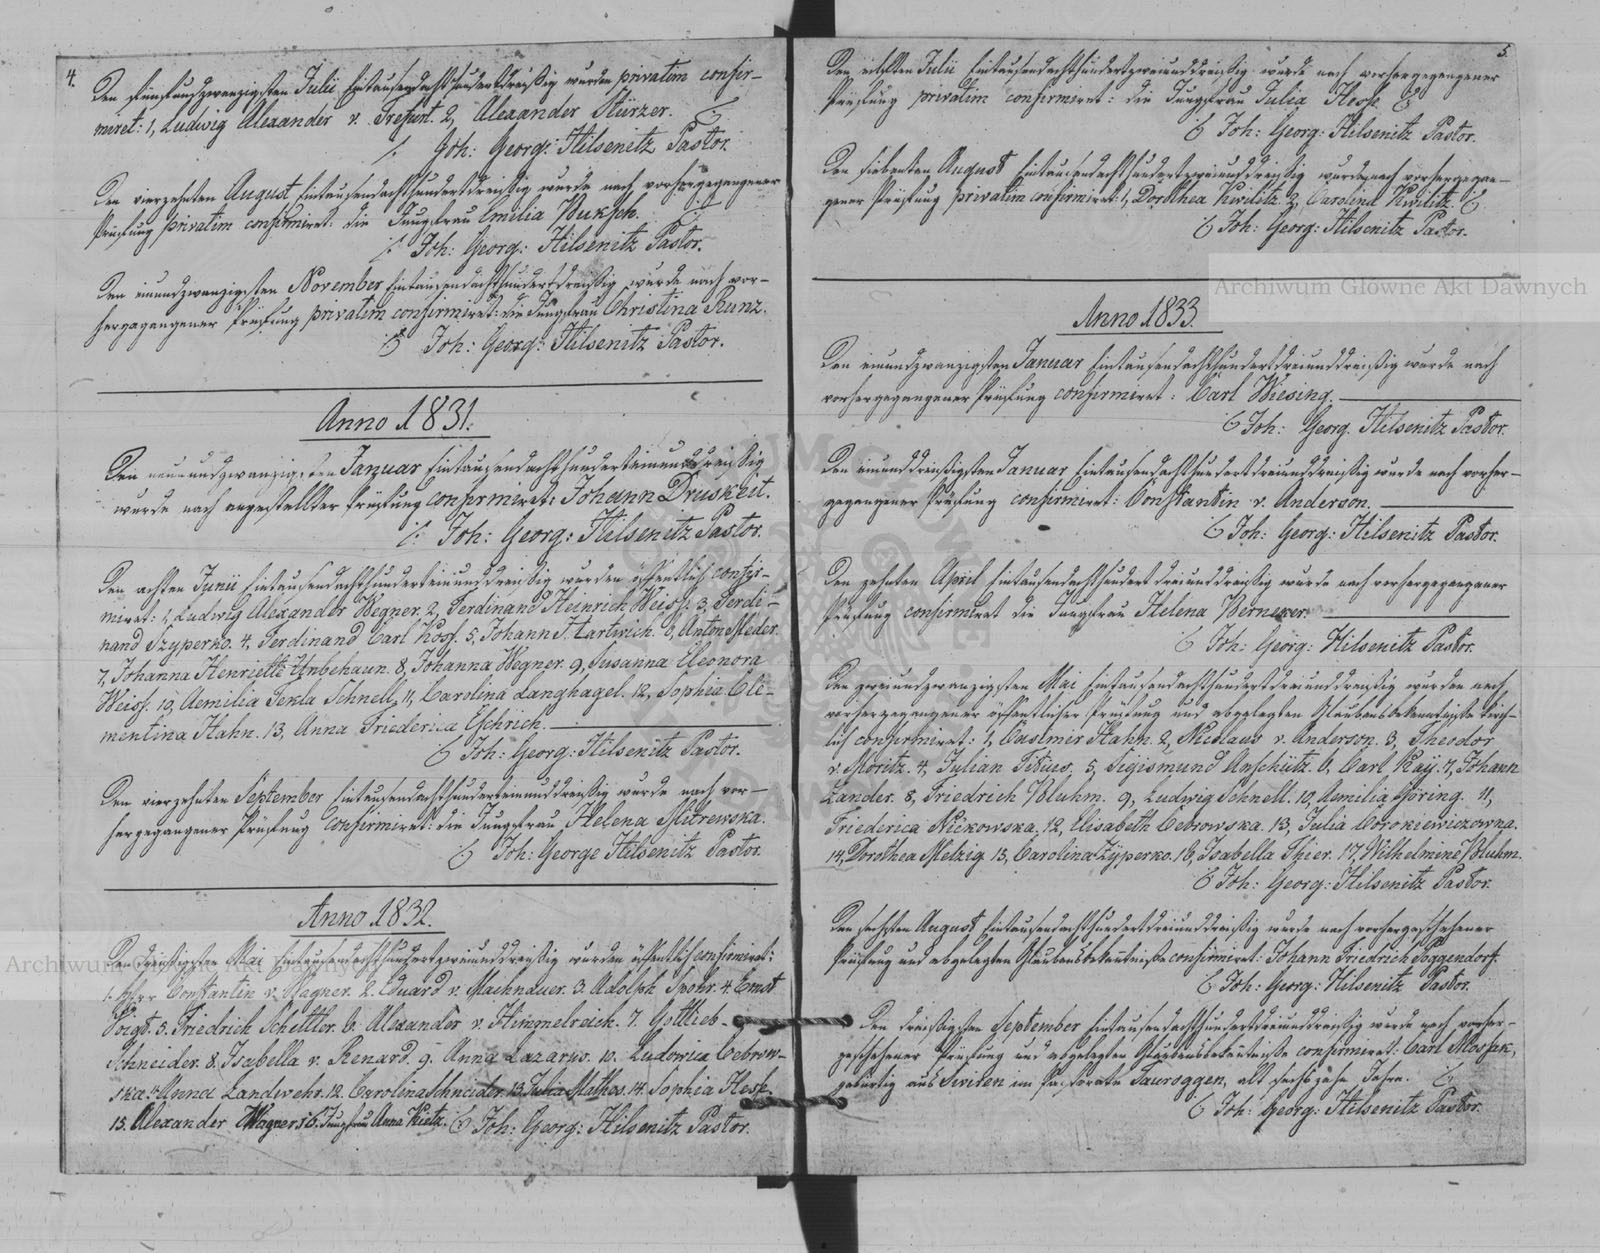 4.
Den fünfundzwanzigsten Julii Eintausendachthundertdreißig wurden privatim confir-
miret: 1, Ludwig Alexander v. Trefurt. 2, Alexander Stürzer.
Joh: Georg: Hilsenitz Pastor.
Den vierzehnten August Eintausendachthundertdreißig wurde nach vorhergegangener
Prüfung privatim confirmiret: die Jungfrau Emilia Buksch.
Joh: Georg: Hilsenitz Pastor.
Den einundzwanzigsten November Eintausendachthundertdreißig wurde nach vor-
hergegangener Prüfung privatim confirmiret: die Jungfrau Christina Kunz.
Joh: Georg: Hilsenitz Pastor.
Anno 1831.
Den neunundzwanzigsten Januar Eintausendachthunderteinunddreißig
wurde nach angestellter Prüfung confirmiret: Johann Druskeit.
Joh: Georg: Hilsenitz Pastor.
Den achten Junii Eintausendachthunderteinunddreißig wurden öffentlich confir-
miret: 1, Ludwig Alexander Wegner. 2, Ferdinand Heinrich Weiss. 3, Ferdi-
nand Szyperko. 4, Ferdinand Carl Koss. 5, Johann Hartwich. 6, Anton Meder.
7, Johanna Henriette Unbehaun. 8, Johanna Wegner. 9, Susanna Eleonora
Weiss. 10, Aemilia Tekla Schnell. 11, Carolina Langhagel. 12, Sophia Cle-
mentina Hahn. 13, Anna Friederica Eschrich.
Joh: Georg: Hilsenitz Pastor.
Den vierzehnten September Eintausendachthunderteinunddreißig wurde nach vor-
hergegangener Prüfung confirmiret: die Jungfrau Helena Mitrewska.
Joh: George Hilsenitz Pastor.
Anno 1832.
Den dreißigsten Mai Eintausendachthundertzweiunddreißig wurden öffentlich confirmiret:
1. Herr Constantin v. Wagner. 2. Eduard v. Machnauer. 3. Adolph Spohr. 4. Ernst
Voigt. 5. Friedrich Schettler. 6. Alexander v. Himmelreich. 7. Gottlieb
Schneider. 8. Isabella v. Renard. 9. Anna Lazarus. 10. Ludovica Cebrow-
ska. 11. Anna Landwehr. 12. Carolina Schneider. 13. Julia Mathos. 14. Sophia Hesse.
15. Alexander Wagner 16. Jungfrau Anna Kietz.
Joh: Georg: Hilsenitz Pastor.
5.
Den eilften Julii Eintausendachthundertzweiunddreißig wurde nach vorhergegangener
Prüfung privatim confirmiret: die Jungfrau Julia Hesse.
Joh: Georg: Hilsenitz Pastor.
Den siebenten August Eintausendachthundertzweiunddreißig wurden nach vorhergegan-
gener Prüfung privatim confirmiret: 1, Dorothea Kivilitz. 2, Carolina Kivilitz.
Joh: Georg: Hilsenitz Pastor.
Archiwum Główne Akt Dawnych
Anno 1833.
Den einundzwanzigsten Januar Eintausendachthundertdreiunddreißig wurde nach
vorhergegangener Prüfung confirmiret: Carl Wiesing.
Joh: Georg. Hilsenitz Pastor.
Den einunddreißigsten Januar Eintausendachthundertdreiunddreißig wurde nach vorher-
gegangener Prüfung confirmiret: Constantin v. Anderson.
Joh: Georg: Hilsenitz Pastor.
Den zehnten April Eintausendachthundertdreiunddreißig wurde nach vorhergegangener
Prüfung confirmiret die Jungfrau Helena Berneker.
Joh: Georg: Hilsenitz Pastor.
Den zweiundzwanzigsten Mai Eintausendachthundertdreiunddreißig wurden nach
vorhergegangener öffentlicher Prüfung und abgelegten Glaubensbekenntniße kirch-
lich confirmiret: 1, Casimir Hahn. 2, Nicolaus v. Anderson. 3, Theodor
v. Moritz. 4, Julian Titius. 5, Sigismund Anschütz. 6, Carl Kay. 7, Johann
Zander. 8, Friedrich Bluhm. 9, Ludwig Schnell. 10, Aemilia Göring. 11,
Friederica Niekowska. 12, Elisabeth Cebrowska. 13, Julia Corokiewiczowna.
14, Dorothea Melzig 15, Carolina Zyperko. 16, Isabella Thier. 17, Wilhelmine Bluhm.
Joh: Georg: Hilsenitz Pastor.
Den sechsten August Eintausendachthundertdreiunddreißig wurde nach vorhergeschehener
Prüfung und abgelegten Glaubensbekenntniße confirmiret: Johann Friedrich Poggendorf.
Joh: Georg: Hilsenitz Pastor.
Archiwum Główne Akt Dawnych
Den dreißigsten September Eintausendachthundertdreiunddreißig wurde nach vorher-
geschehener Prüfung und abgelegten Glaubensbekenntniße confirmiret: Carl Mossak,
gebürtig aus Siviren im Pastorate Tauroggen, alt sechszehn Jahre.
Joh: Georg: Hilsenitz Pastor.